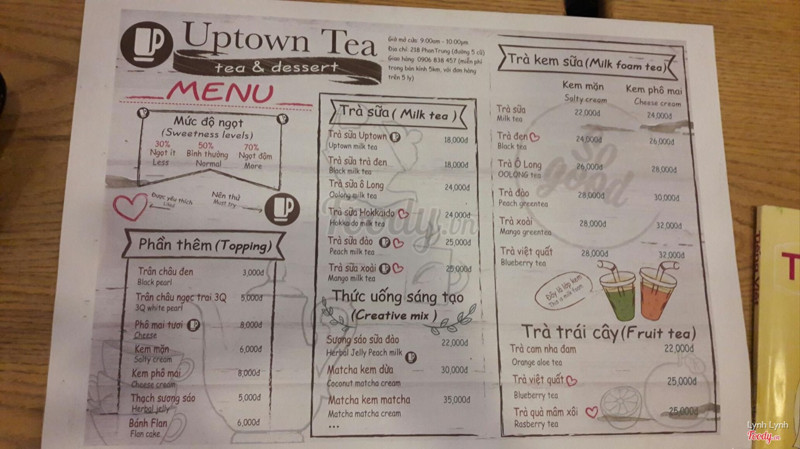 Uptown Tea
tea & dessert
Giờ mở cửa: 9.00am - 10.00pm
Địa chỉ: 218 Phan Trung (đường 5 cũ)
Giao hàng: 0906 838 457 (miễn phí
trong bán kính 5km, với đơn hàng
trên 5 ly)
MENU
Mức độ ngọt
(Sweetness levels)
30% 50% 70%
Ngọt ít Bình thường Ngọt đậm
Less Normal More
Được yêu thích
Nên thử
Must try
Phần thêm (Topping)
Trân châu đen 3,000đ
Black pearl
Trân châu ngọc trai 3Q 5,000đ
3Q white pearl
Phô mai tươi 8,000đ
Cheese
Kem mặn 6,000đ
Salty cream
Kem phô mai 8,000đ
Cheese cream
Thạch sương sáo 5,000đ
Herbal jelly
Bánh Flan 6,000đ
Flan cake
Trà sữa (Milk tea)
Trà sữa Uptown 18,000đ
Uptown milk tea
Trà sữa trà đen 18,000đ
Black milk tea
Trà sữa ô Long 24,000đ
Oolong milk tea
Trà sữa Hokkaido 24,000đ
Hokkaido milk tea
Trà sữa đào 25,000đ
Peach milk tea
Trà sữa xoài 25,000đ
Mango milk tea
Thức uống sáng tạo
(Creative mix)
Sương sáo sữa đào 22,000đ
Herbal Jelly Peach milk
Matcha kem dừa 30,000đ
Coconut matcha cream
Matcha kem matcha 35,000đ
Matcha matcha cream
...
Trà kem sữa (Milk foam tea)
Kem mặn Kem phô mai
Salty cream Cheese cream
Trà sữa 22,000đ 24,000đ
Milk tea
Trà đen 24,000đ 26,000đ
Black tea
Trà Ô Long 26,000đ 28,000đ
OOLONG tea
Trà đào 28,000đ 30,000đ
Peach greentea
Trà xoài 28,000đ 32,000đ
Mango greentea
Trà việt quất 28,000đ 32,000đ
Blueberry tea
So good
Đây là lớp kem
This is milk foam
Trà trái cây (Fruit tea)
Trà cam nha đam 22,000đ
Orange aloe tea
Trà việt quất 25,000đ
Blueberry tea
Trà quả mâm xôi 25,000đ
Rasberry tea
foody.vn
Lynh Lynh
Foody.vn